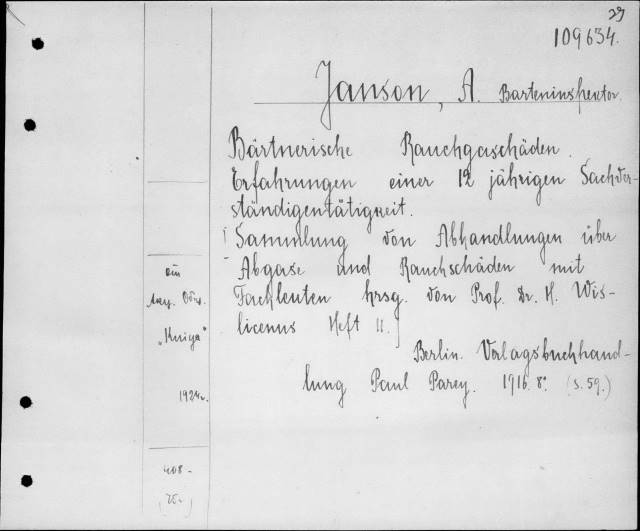 29
109634.
Janson, A. Barteninspektor.
Bärtnerische Rauchgaschäden.
Erfahrungen einer 12 jährigen Sachver-
ständigentätigkeit.
[Sammlung von Abhandlungen über
Abgase und Rauchschäden mit
Fachleuten hrsg. von Prof. Dr. H. Wis-
licenus Heft 11.]
Berlin. Verlagsbuchhand-
lung Paul Parey. 1916. 8°. (S. 59.)
"Kniga"
1924
408 -